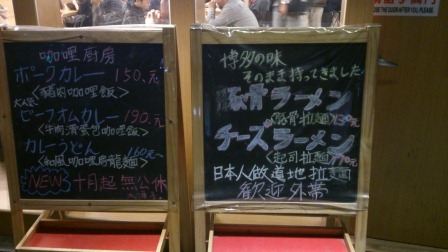 咖哩厨房
ポークカレー 150.元
<豬肉咖哩飯>
大人気
ビーフオムカレー 190.元
<牛肉滑蛋包咖哩飯>
カレーうどん 160元~
<和風咖哩烏龍麵>
NEW 十月起 無公休
博多の味
そのまま持ってきました
豚骨ラーメン
<豚骨拉麵> 150元
チーズラーメン
<起司拉麵> 170元
日本人做道地拉麵
歡迎外帶
CLOSE THE DOOR AFTER YOU, PLEASE